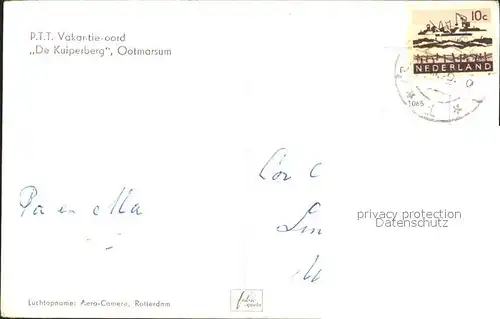 P.T.T. Vakantie-oord
„De Kuiperberg", Ootmarsum
10c
NEDERLAND
1965
Pa en Ma
Cor C
privacy protection
Datenschutz
Luchtopname: Aero-Camera, Rotterdam